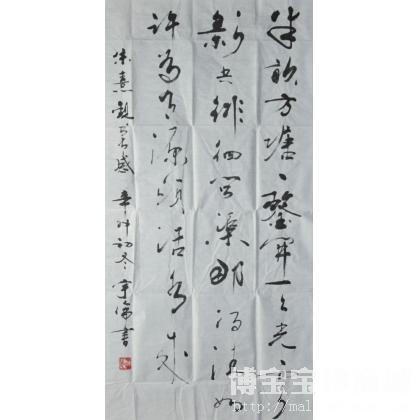 半畝方塘一鑒開天光雲
影共徘徊問渠那得清如
許為有源頭活水来
朱熹觀書有感 辛卯初冬 書
博宝